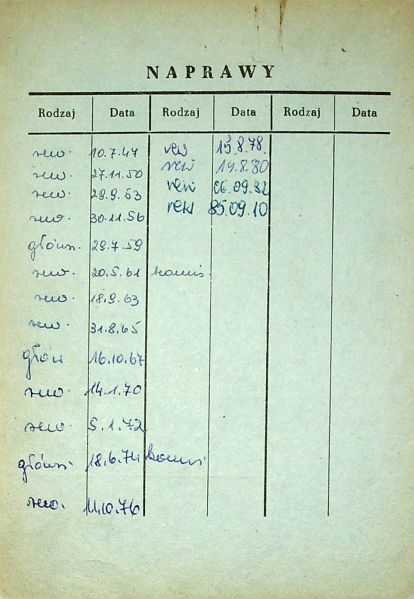 NAPRAWY
Rodzaj Data Rodzaj Data Rodzaj Data
rew. 10.7.47 rew 13.8.78
rew. 27.11.50 rew 14.8.80
rew. 29.9.53 rew 06.09.82
rew. 30.11.56 rew 85.09.10
główn. 29.7.59
rew. 20.5.61 komis.
rew. 18.9.63
rew. 31.8.65
główn 16.10.67
rew. 14.1.70
rew. 5.1.72
główn. 18.6.74 komis
rew. 11.10.76